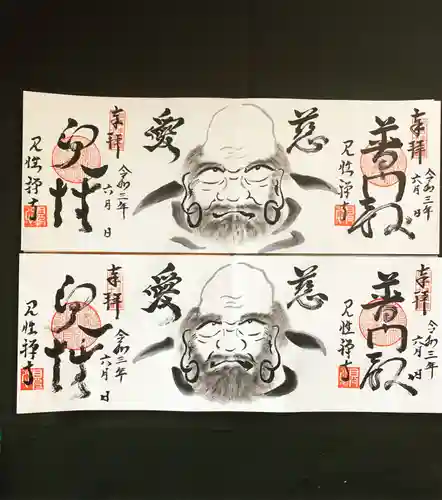 奉拝
普門殿
令和三年
六月 日
見性禅寺
慈
愛
奉拝
見性
令和三年
六月 日
見性禅寺
奉拝
普門殿
令和三年
六月 日
見性禅寺
慈
愛
奉拝
見性
令和三年
六月 日
見性禅寺